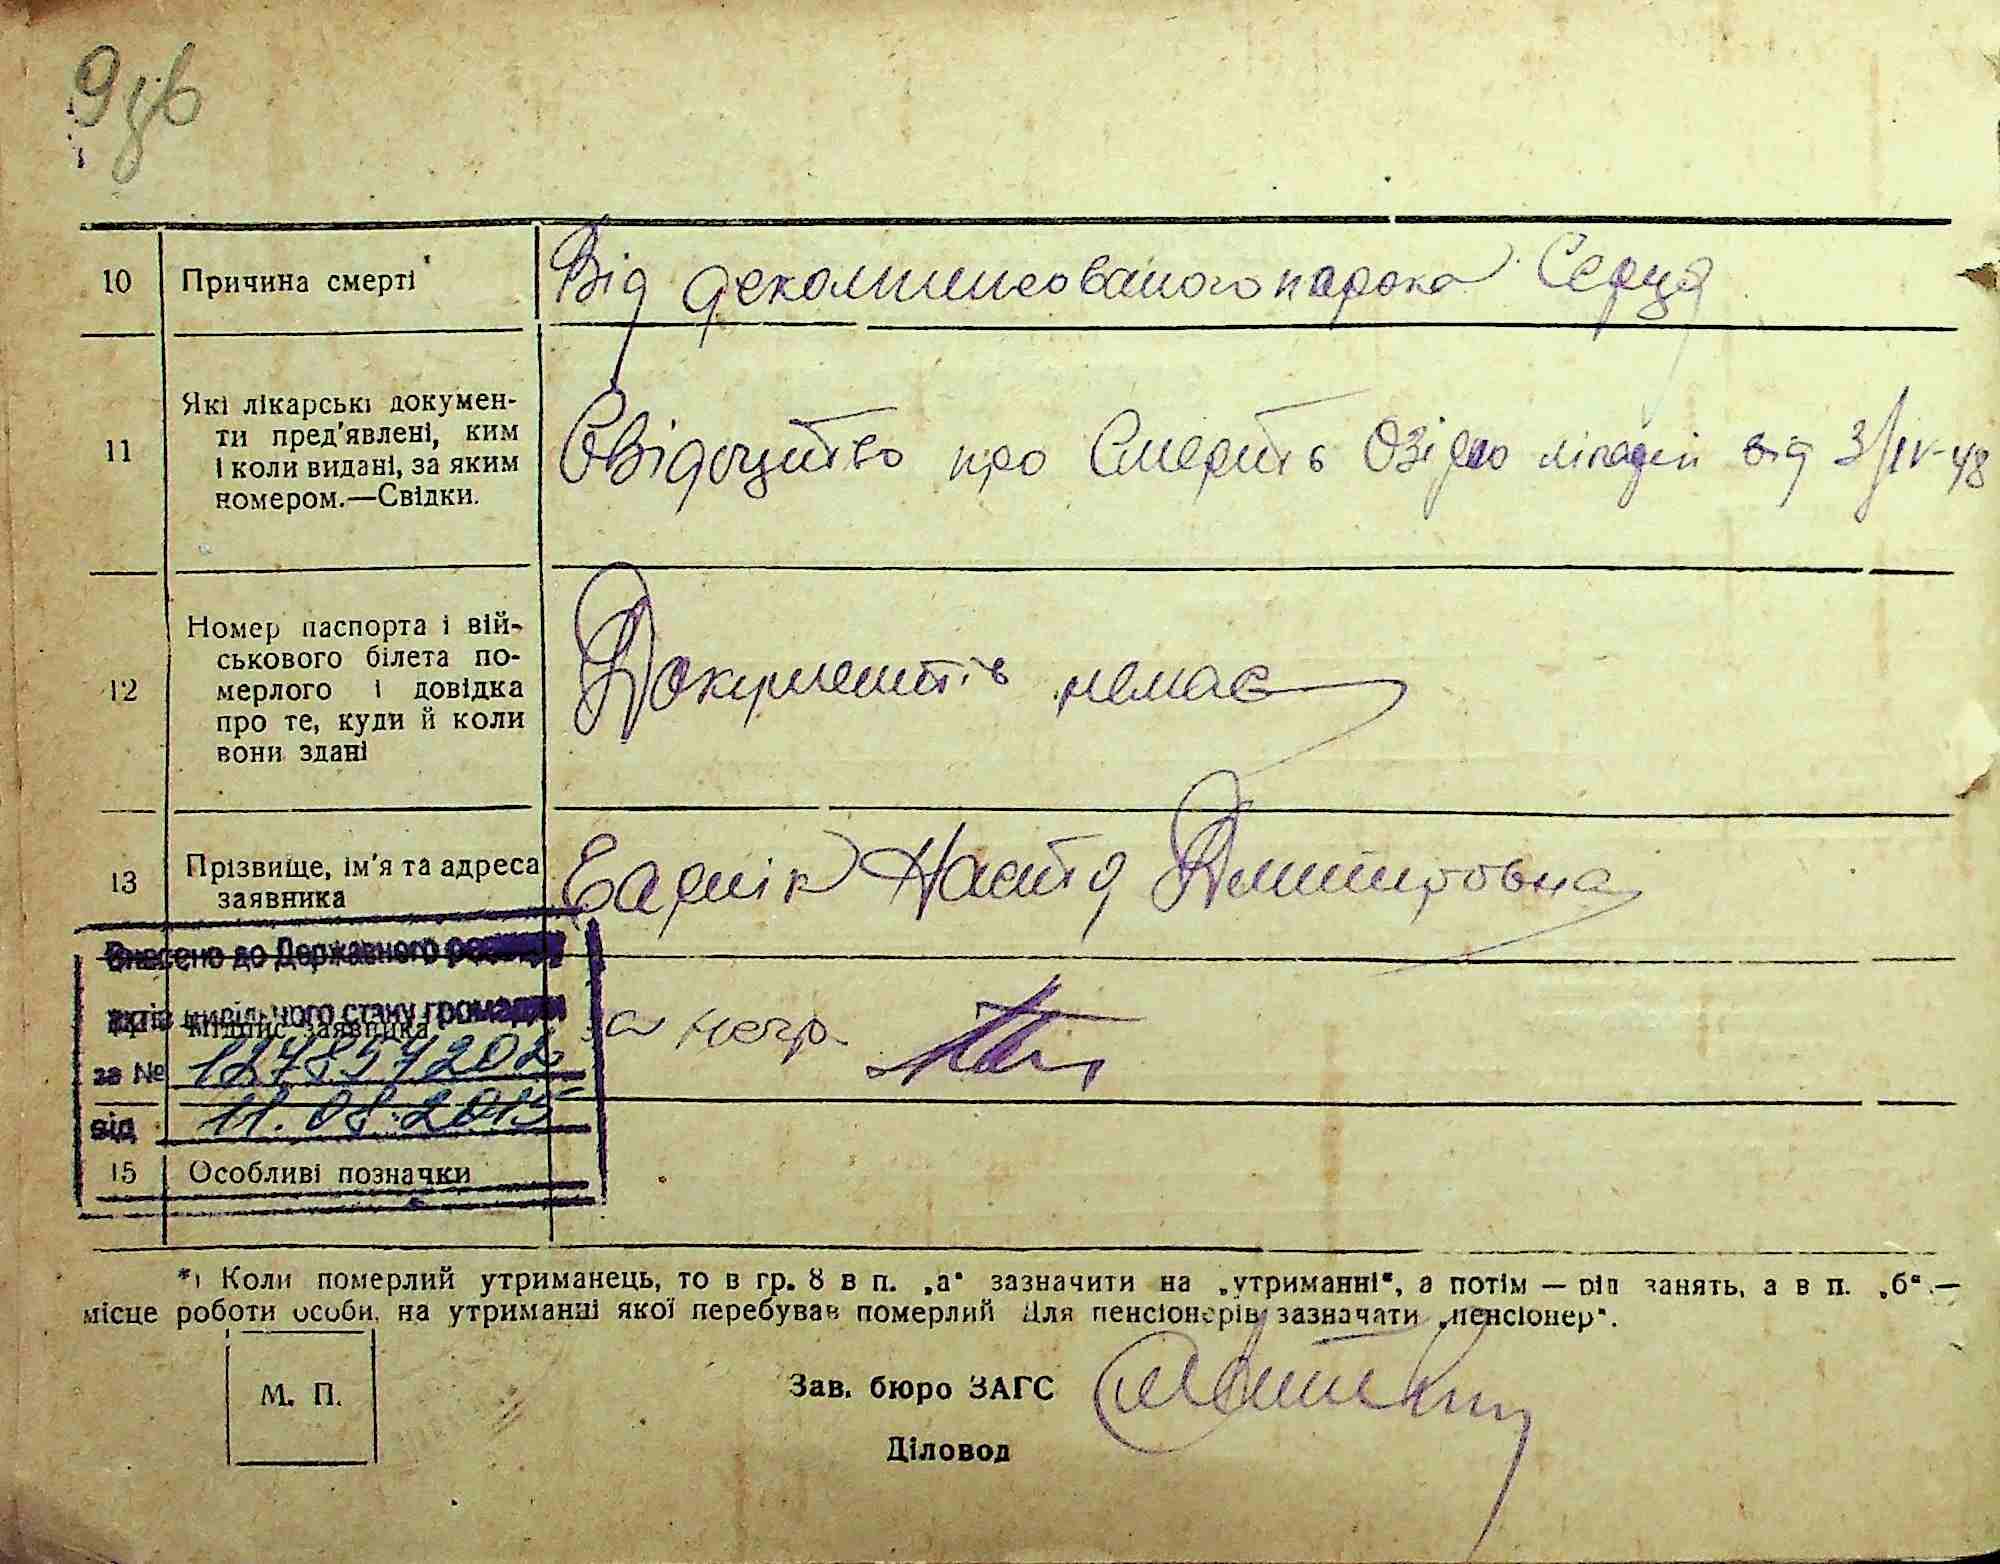 10 Причина смерті Від декомпенсованого порока Серця
11 Які лікарські докумен-
ти пред'явлені, ким
і коли видані, за яким
номером.—Свідки.
Свідоцтво про Смерть від 3/IV-48
12 Номер паспорта і вій-
ськового білета по-
мерлого і довідка
про те, куди й коли
вони здані
Документів немає
13 Прізвище, ім'я та адреса
заявника
Настя Дмитровна
Внесено до Державного реєстру
актів цивільного стану громадян
Підпис заявника
за № 1278574202
від 11.08.2015
15 Особливі позначки
*) Коли померлий утриманець, то в гр. 8 в п. „а" зазначити на „утриманні", а потім — рід занять, а в п. „б".—
місце роботи особи, на утриманні якої перебував померлий Для пенсіонерів зазначати „пенсіонер".
М. П.
Зав. бюро ЗАГС
Діловод